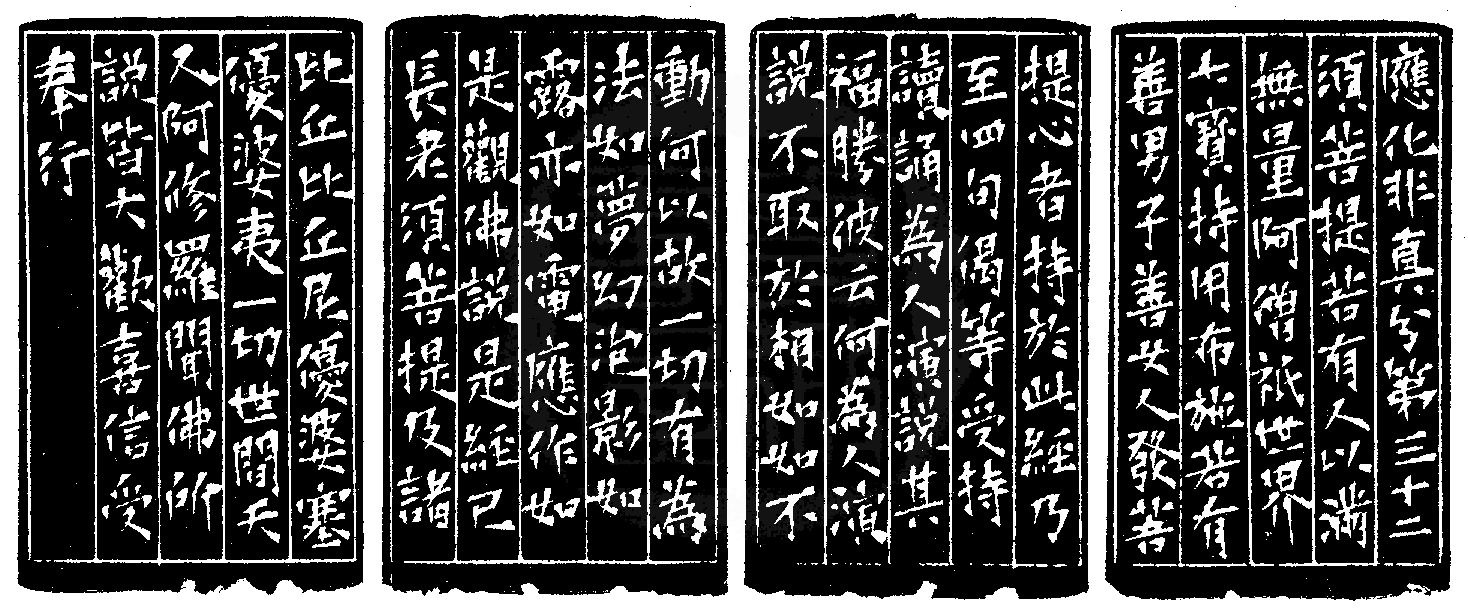 應化非真分第三十二
須菩提若有人以滿
無量阿僧祇世界
七寶持用布施若有
善男子善女人發菩
提心者持於此經乃
至四句偈等受持
讀誦為人演說其
福勝彼云何為人演
說不取於相如如不
動何以故一切有為
法如夢幻泡影如
露亦如電應作如
是觀佛說是經已
長老須菩提及諸
比丘比丘尼優婆塞
優婆夷一切世間天
人阿修羅聞佛所
說皆大歡喜信受
奉行